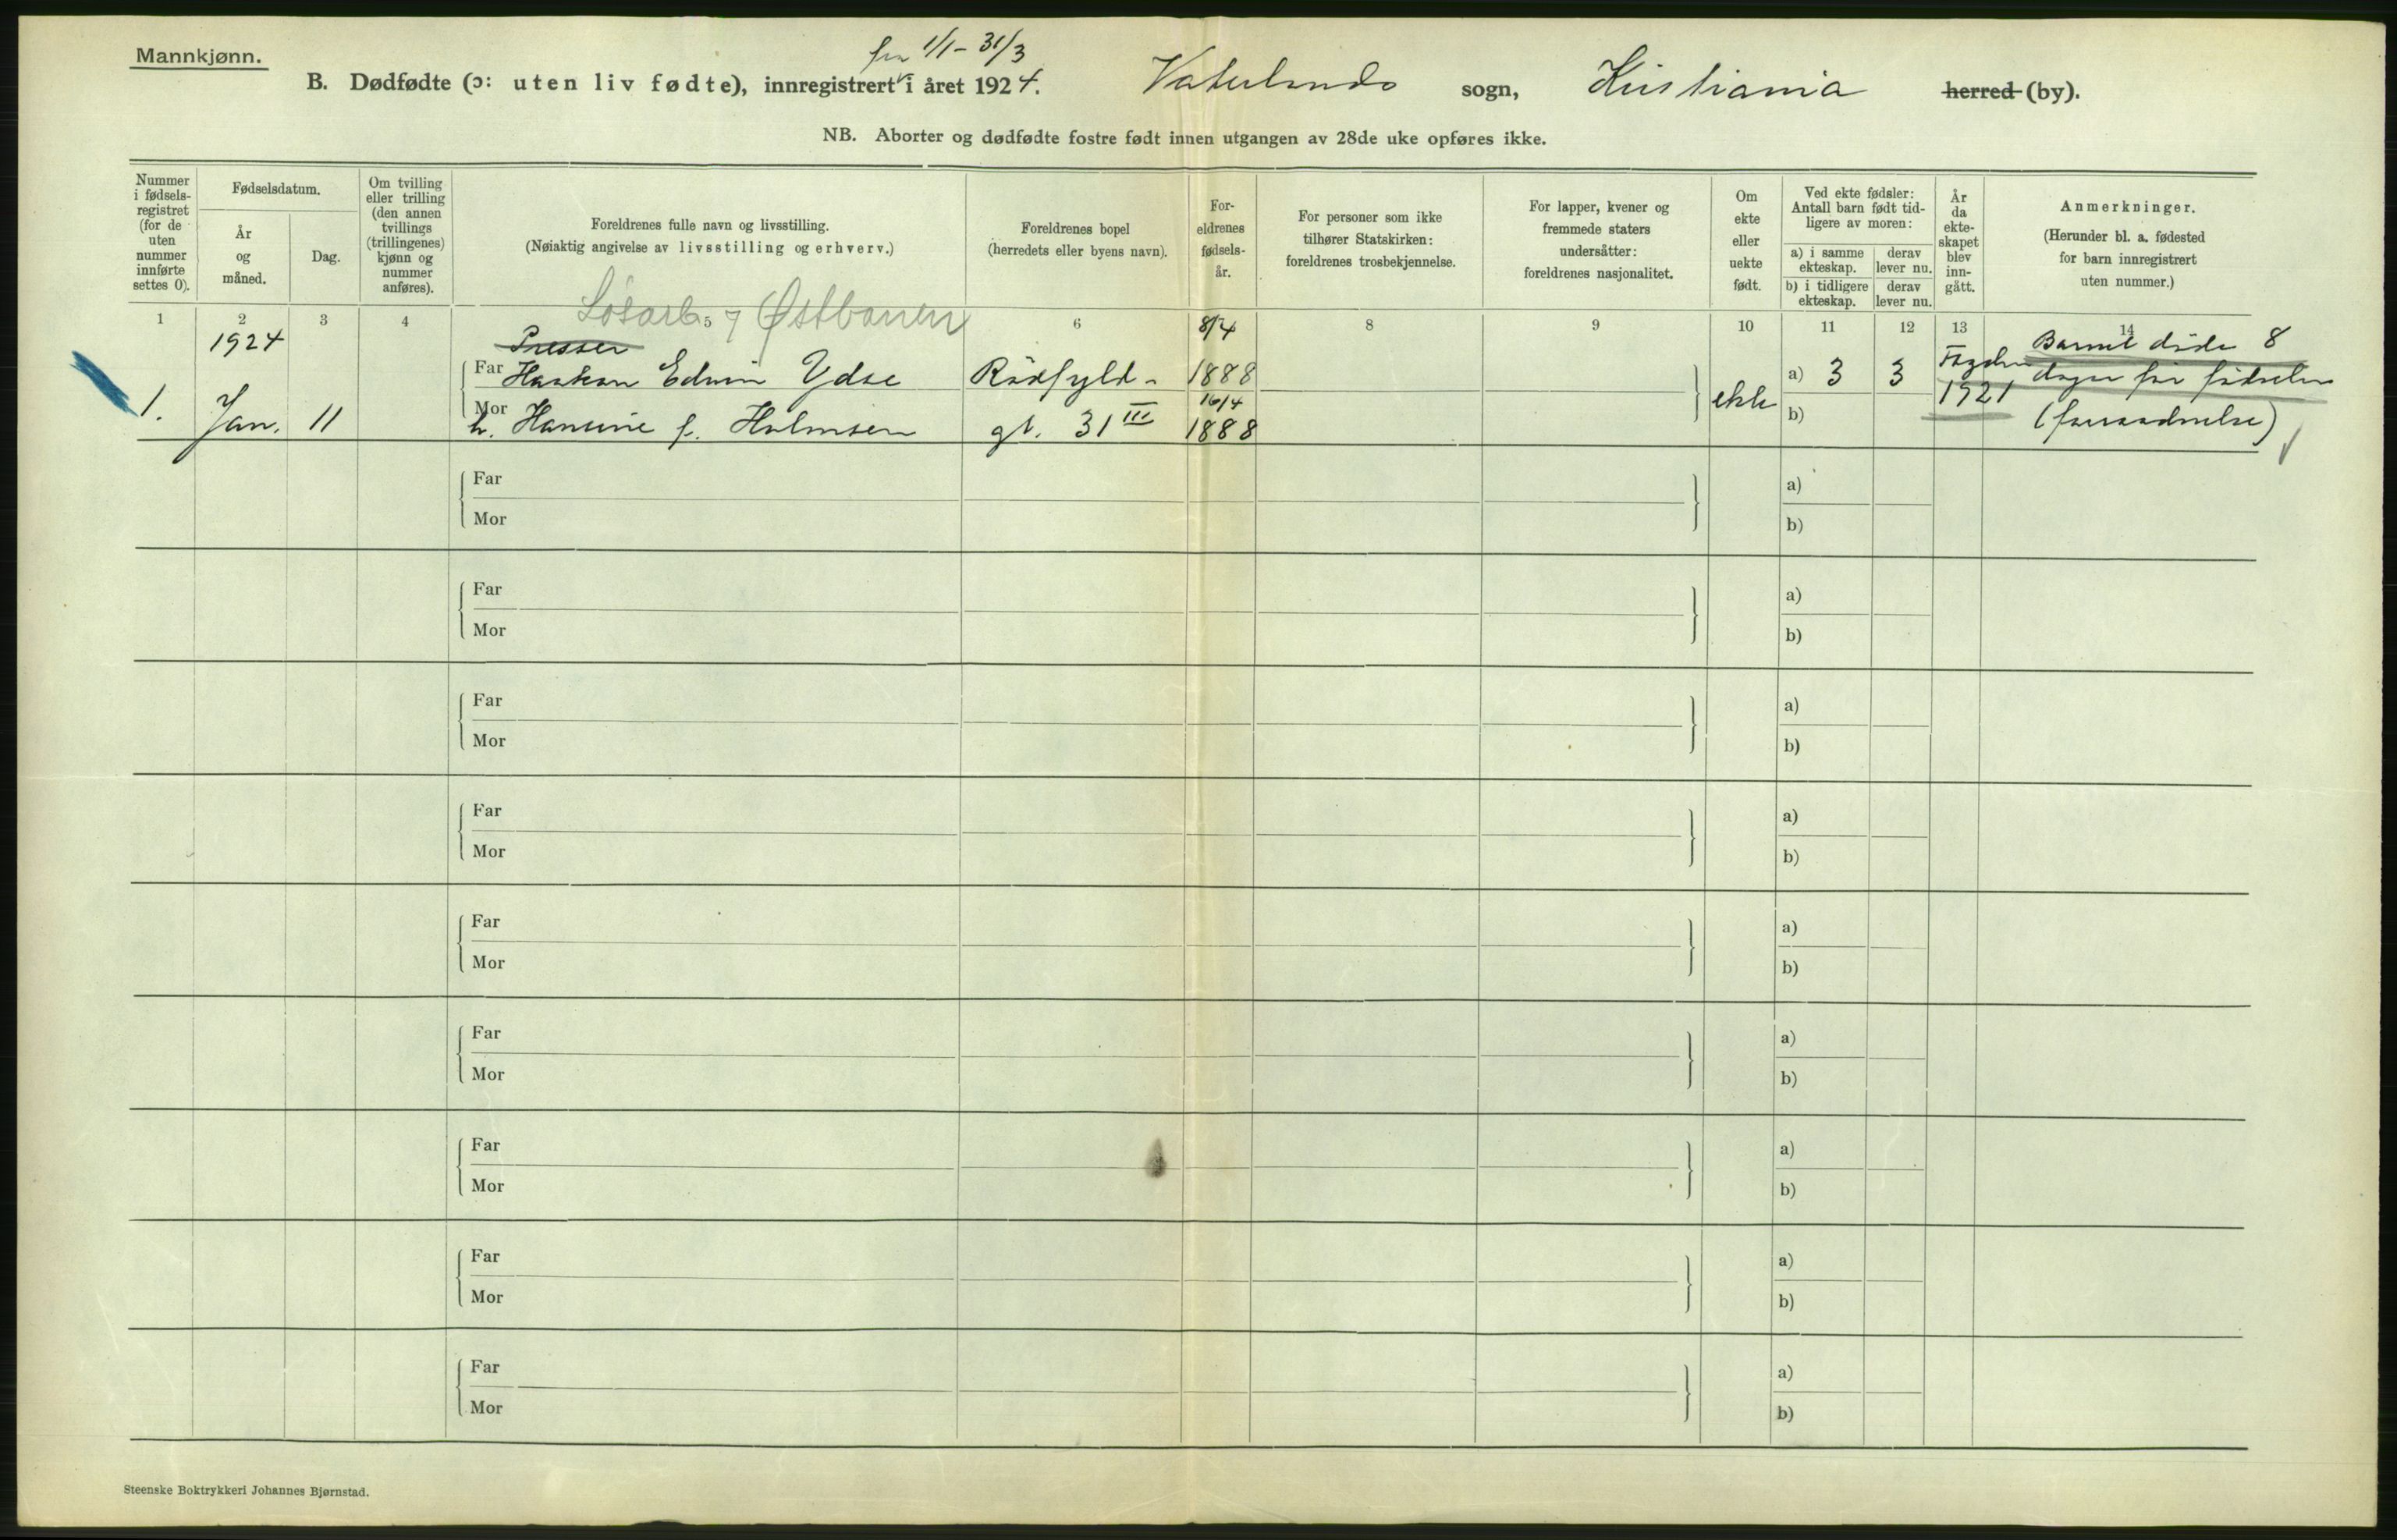 Mannkjønn.
fra 1/1 - 31/3
B. Dødfødte (ɔ: uten liv fødte), innregistrert i året 1924. Vaterlands sogn, Kristiania herred (by).
NB. Aborter og dødfødte fostre født innen utgangen av 28de uke opføres ikke.
Nummer i fødsels- registret (for de uten nummer innførte settes 0).
Fødselsdatum.
År og måned.
Dag.
Om tvilling eller trilling (den annen tvillings (trillingenes) kjønn og nummer anføres).
Foreldrenes fulle navn og livsstilling.
(Nøiaktig angivelse av livsstilling og erhverv.)
Foreldrenes bopel
(herredets eller byens navn).
For- eldrenes fødsels- år.
For personer som ikke tilhører Statskirken: foreldrenes trosbekjennelse.
For lapper, kvener og fremmede staters undersåtter: foreldrenes nasjonalitet.
Om ekte eller uekte født.
Ved ekte fødsler: Antall barn født tid- ligere av moren:
a) i samme ekteskap.
derav lever nu.
b) i tidligere ekteskap.
derav lever nu.
År da ekte- skapet blev inn- gått.
Anmerkninger.
(Herunder bl. a. fødested for barn innregistrert uten nummer.)
Løsarb. Østbanen
1 2 3 4 5 6 7 8 9 10 11 12 13 14
1924 Presser 8/4 Barnet døde 8
Far Haakon Edwin Ydse Rødfyld- 1888 a) 3 3 dager før fødselen
1. Jan. 11 16/4 ekte 1921
Mor h. Hansine f. Halmsen gt. 31 III 1888 b) (forraadnelse)
Far a)
Mor b)
Far a)
Mor b)
Far a)
Mor b)
Far a)
Mor b)
Far a)
Mor b)
Far a)
Mor b)
Far a)
Mor b)
Far a)
Mor b)
Far a)
Mor b)
Steenske Boktrykkeri Johannes Bjørnstad.